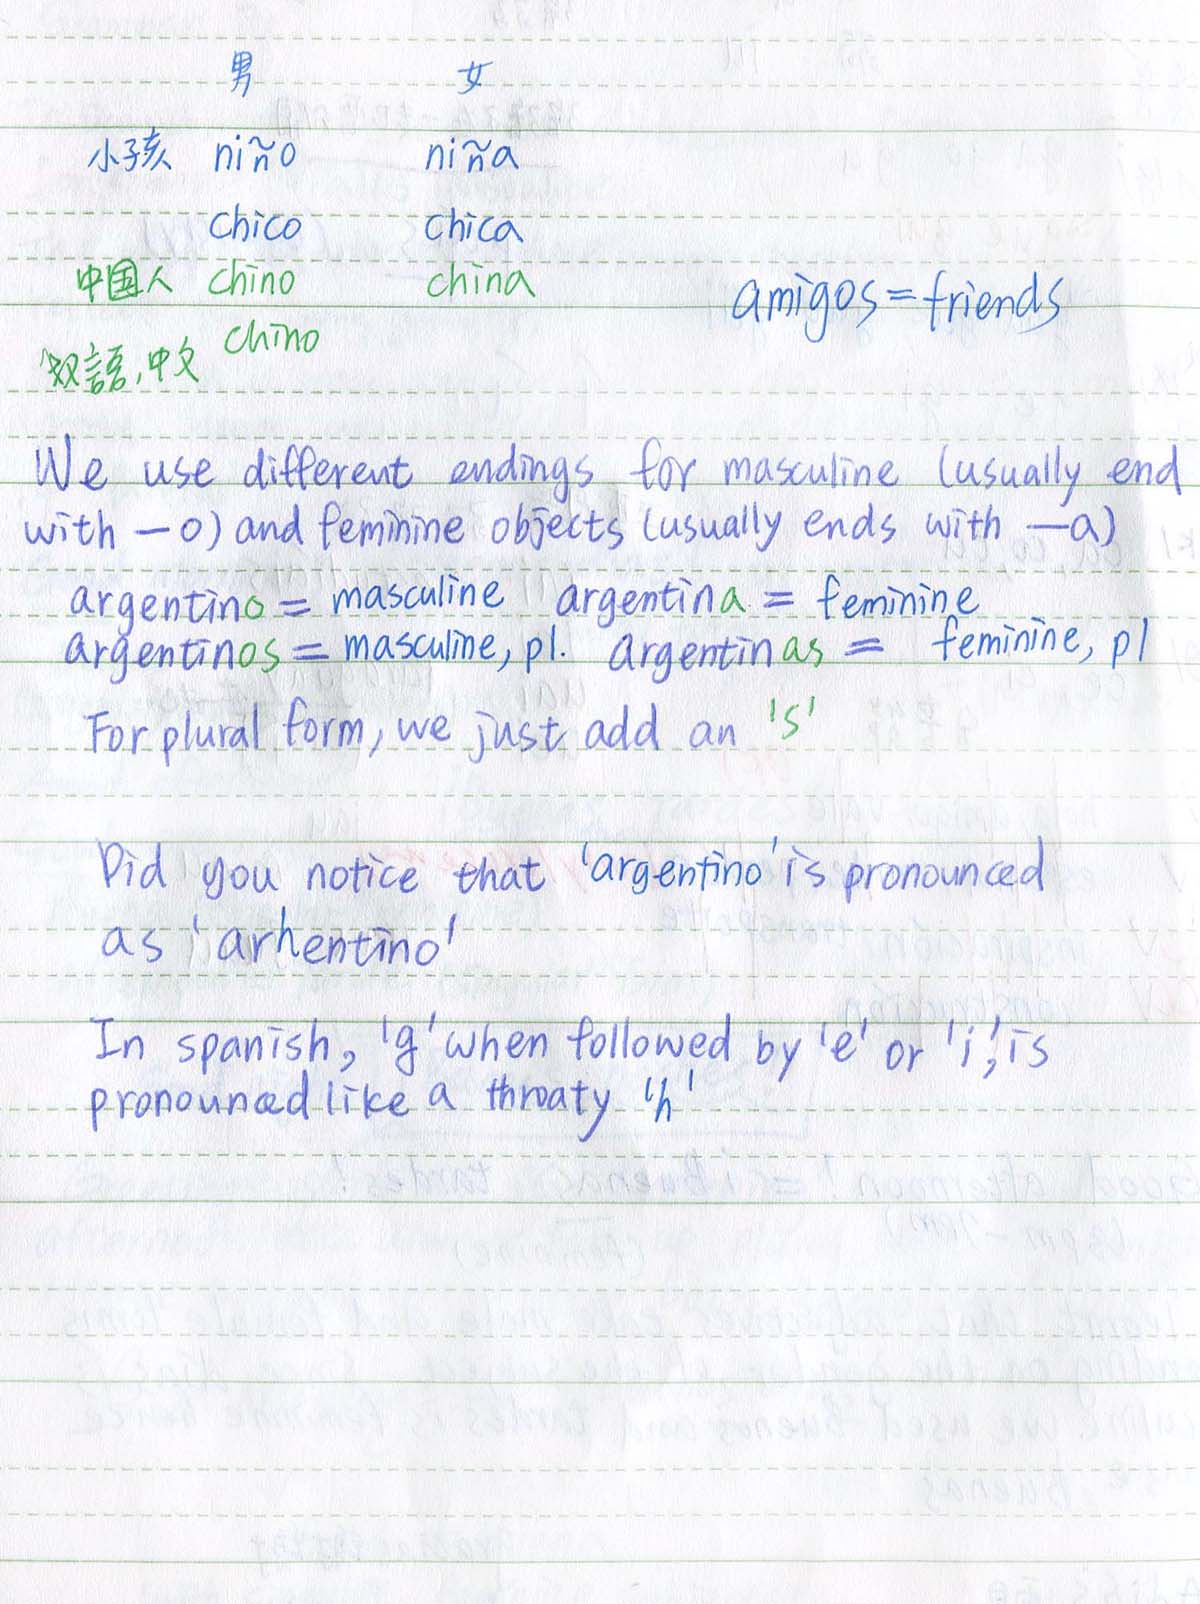 男 女
小孩 niño niña
chico chica
中国人 chino china
amigos = friends
汉語, 中文 chino
We use different endings for masculine (usually end
with -o) and feminine objects (usually ends with -a)
argentino = masculine argentina = feminine
argentinos = masculine, pl. argentinas = feminine, pl
For plural form, we just add an 's'
Did you notice that 'argentino' is pronounced
as 'arhentino'
In spanish, 'g' when followed by 'e' or 'i', is
pronounced like a throaty 'h'